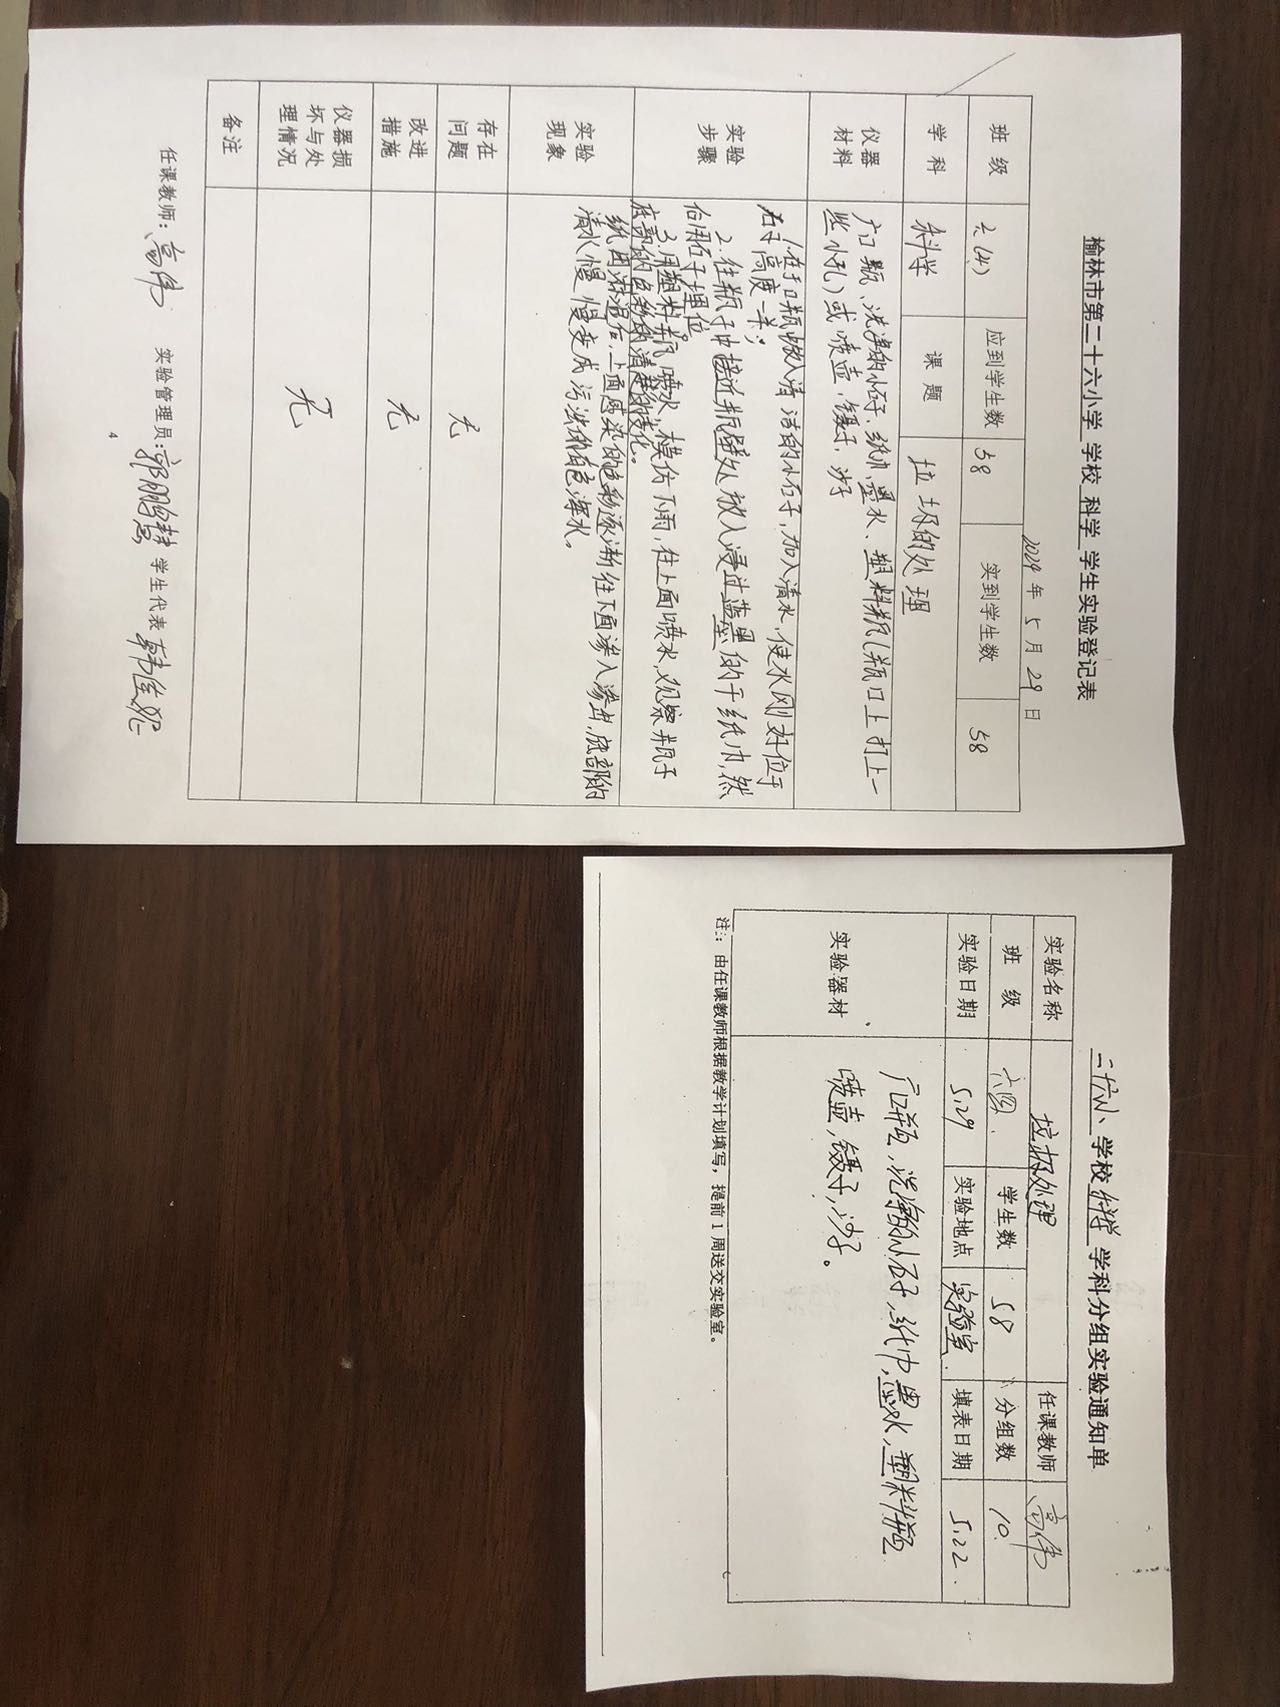 榆林市第二十六小学 学校 科学 学生实验登记表
2024 年 5 月 29 日
班 级 六(4) 应到学生数 58 实到学生数 58
学 科 科学 课 题 垃圾的处理
仪器材料 广口瓶、洗净的小石子、纸巾、墨水、塑料瓶(瓶口上打上一
些小孔)或喷壶,镊子,沙子
实验步骤 1.在广口瓶中放入清洁的小石子,加入清水,使水刚好位于
石子高度一半;
2.往瓶子中接近瓶壁处放入浸过蓝墨的干纸巾,然
后用石子埋位
3.用塑料瓶喷水,模仿下雨,往上面喷水,观察瓶子
底部的色彩的清楚的变化。
实验现象 纸因淋湿后,上面感染的色彩逐渐往下面渗入渗出,底部的
清水慢慢变成污浊的有色浑水。
存在问题 无
改进措施 无
仪器损坏与处理情况 无
备注
任课教师:高伟 实验管理员:郭鹏慧 学生代表 韩佳妮
4
二十六小 学校 科学 学科分组实验通知单
实验名称 垃圾处理 任课教师 高伟
班 级 六四. 学生数 58 分组数 10.
实验日期 5.29 实验地点 实验室. 填表日期 5.22.
实验器材 广口瓶,洗净的小石子,纸巾,墨水,塑料瓶
喷壶,镊子,沙子。
注:由任课教师根据教学计划填写,提前 1 周送交实验室。